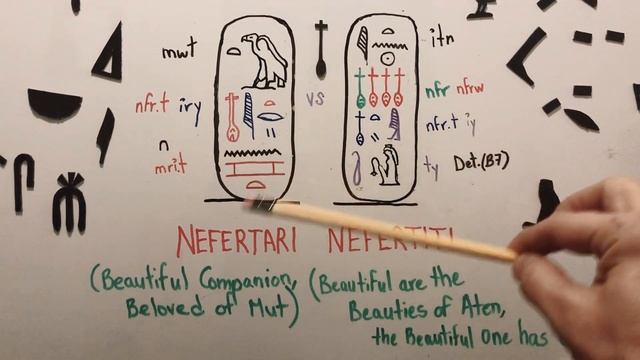 mwt
nfr.t iry
n
mri.t
vs
itn
nfr nfrw
nfr.t iy
ty Det.(B7)
NEFERTARI
(Beautiful Companion,
Beloved of Mut)
NEFERTITI
(Beautiful are the
Beauties of Aten,
the Beautiful One has